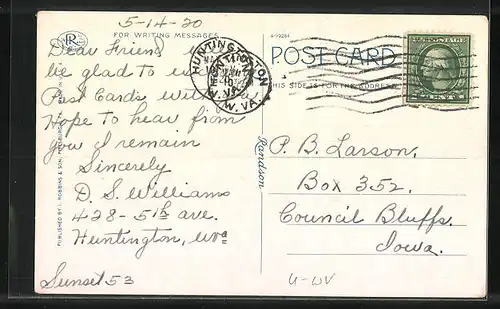 5-14-20
FOR WRITING MESSAGES
Dear Friend will
be glad to ex
Post Cards with you
Hope to hear from
you I remain
Sincerely
D. S. Williams
428-5th ave.
Huntington, Wva
Sunset 53
PUBLISHED BY I. ROBBINS & SON, PITTSBURGH
R
HUNTINGTON
W. VA.
4-99264
POST CARD
THIS SIDE IS FOR THE ADDRESS
P. B. Larson.
Box 352.
Council Bluffs.
Iowa.
U-WV